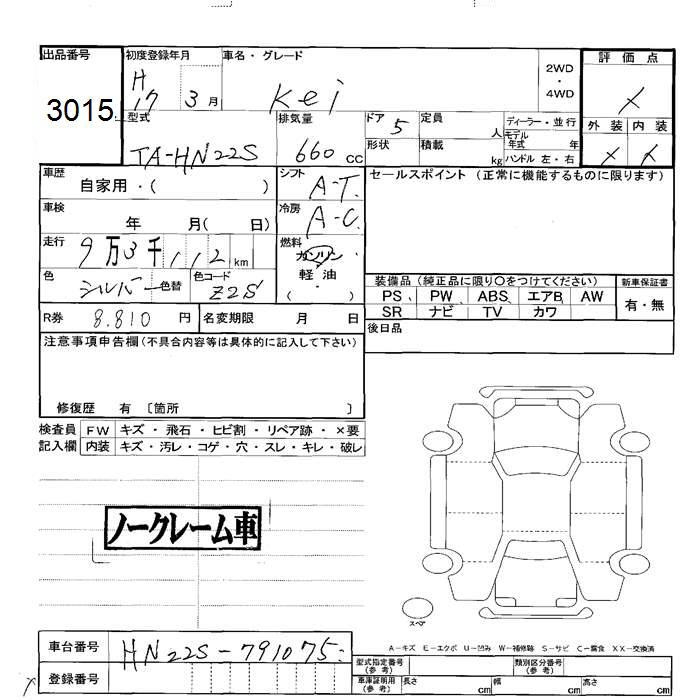 出品番号 初度登録年月 車名・グレード 2WD・4WD 評価点
3015 H17 3月 Kei
型式 排気量 ドア 5 定員 人 ディーラー・並行 外装 内装
TA-HN22S 660 CC 形状 積載 kg モデル年式 年 ハンドル 左・右
車歴 シフト A-T. セールスポイント (正常に機能するものに限ります)
自家用・( )
車検 年 月( 日) 冷房 A-C.
走行 9万3千112km 燃料 ガソリン
軽油
( ・ )
色 シルバー 色替 色コード Z2S 装備品 (純正品に限り○をつけてください) 新車保証書
PS PW ABS エアB AW 有・無
SR ナビ TV カワ
R券 8.810 円 名変期限 月 日 後日品
注意事項申告欄(不具合内容等は具体的に記入して下さい)
修復歴 有 〔箇所 〕
検査員 FW キズ・飛石・ヒビ割・リペア跡・×要
記入欄 内装 キズ・汚レ・コゲ・穴・スレ・キレ・破レ
ノークレーム車
スペア
A-キズ E-エクボ U-凹み W-補修跡 S-サビ C-腐食 XX-交換済
車台番号 HN22S-791075 型式指定番号(参考) 類別区分番号(参考)
登録番号 車庫証明用(参考) 長さ cm 幅 cm 高さ cm